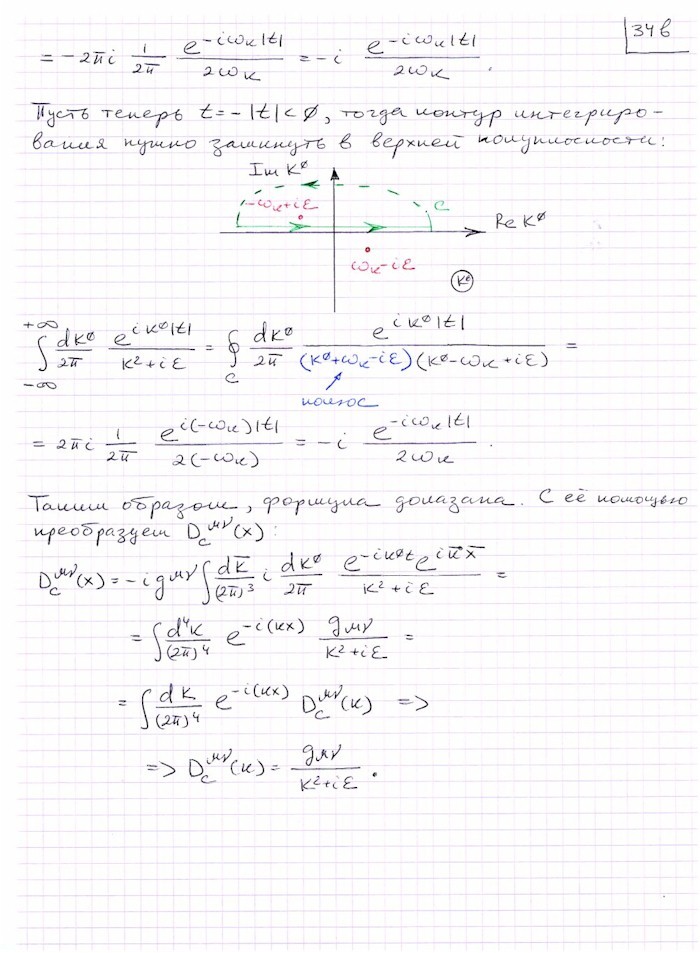 34в
= -2πi 1/2π e^{-iωₖ|t|}/2ωₖ = -i e^{-iωₖ|t|}/2ωₖ .
Пусть теперь t = -|t| < 0, тогда контур интегриро-
вания нужно замкнуть в верхней полуплоскости:
Im k⁰
-ωₖ+iε
C
Re k⁰
ωₖ-iε
k⁰
∫_{-∞}^{+∞} dk⁰/2π e^{ik⁰|t|}/(k²+iε) = ∮_C dk⁰/2π e^{ik⁰|t|}/((k⁰+ωₖ-iε)(k⁰-ωₖ+iε)) =
полюс
= 2πi 1/2π e^{i(-ωₖ)|t|}/2(-ωₖ) = -i e^{-iωₖ|t|}/2ωₖ .
Таким образом, формула доказана. С её помощью
преобразуем D_c^{μν}(x):
D_c^{μν}(x) = -i g^{μν} ∫ dk̄/(2π)³ i dk⁰/2π e^{-ik⁰t} e^{ik̄x̄}/(k²+iε) =
= ∫ d⁴k/(2π)⁴ e^{-i(kx)} g^{μν}/(k²+iε) =
= ∫ dk/(2π)⁴ e^{-i(kx)} D_c^{μν}(k) =>
=> D_c^{μν}(k) = g^{μν}/(k²+iε) .